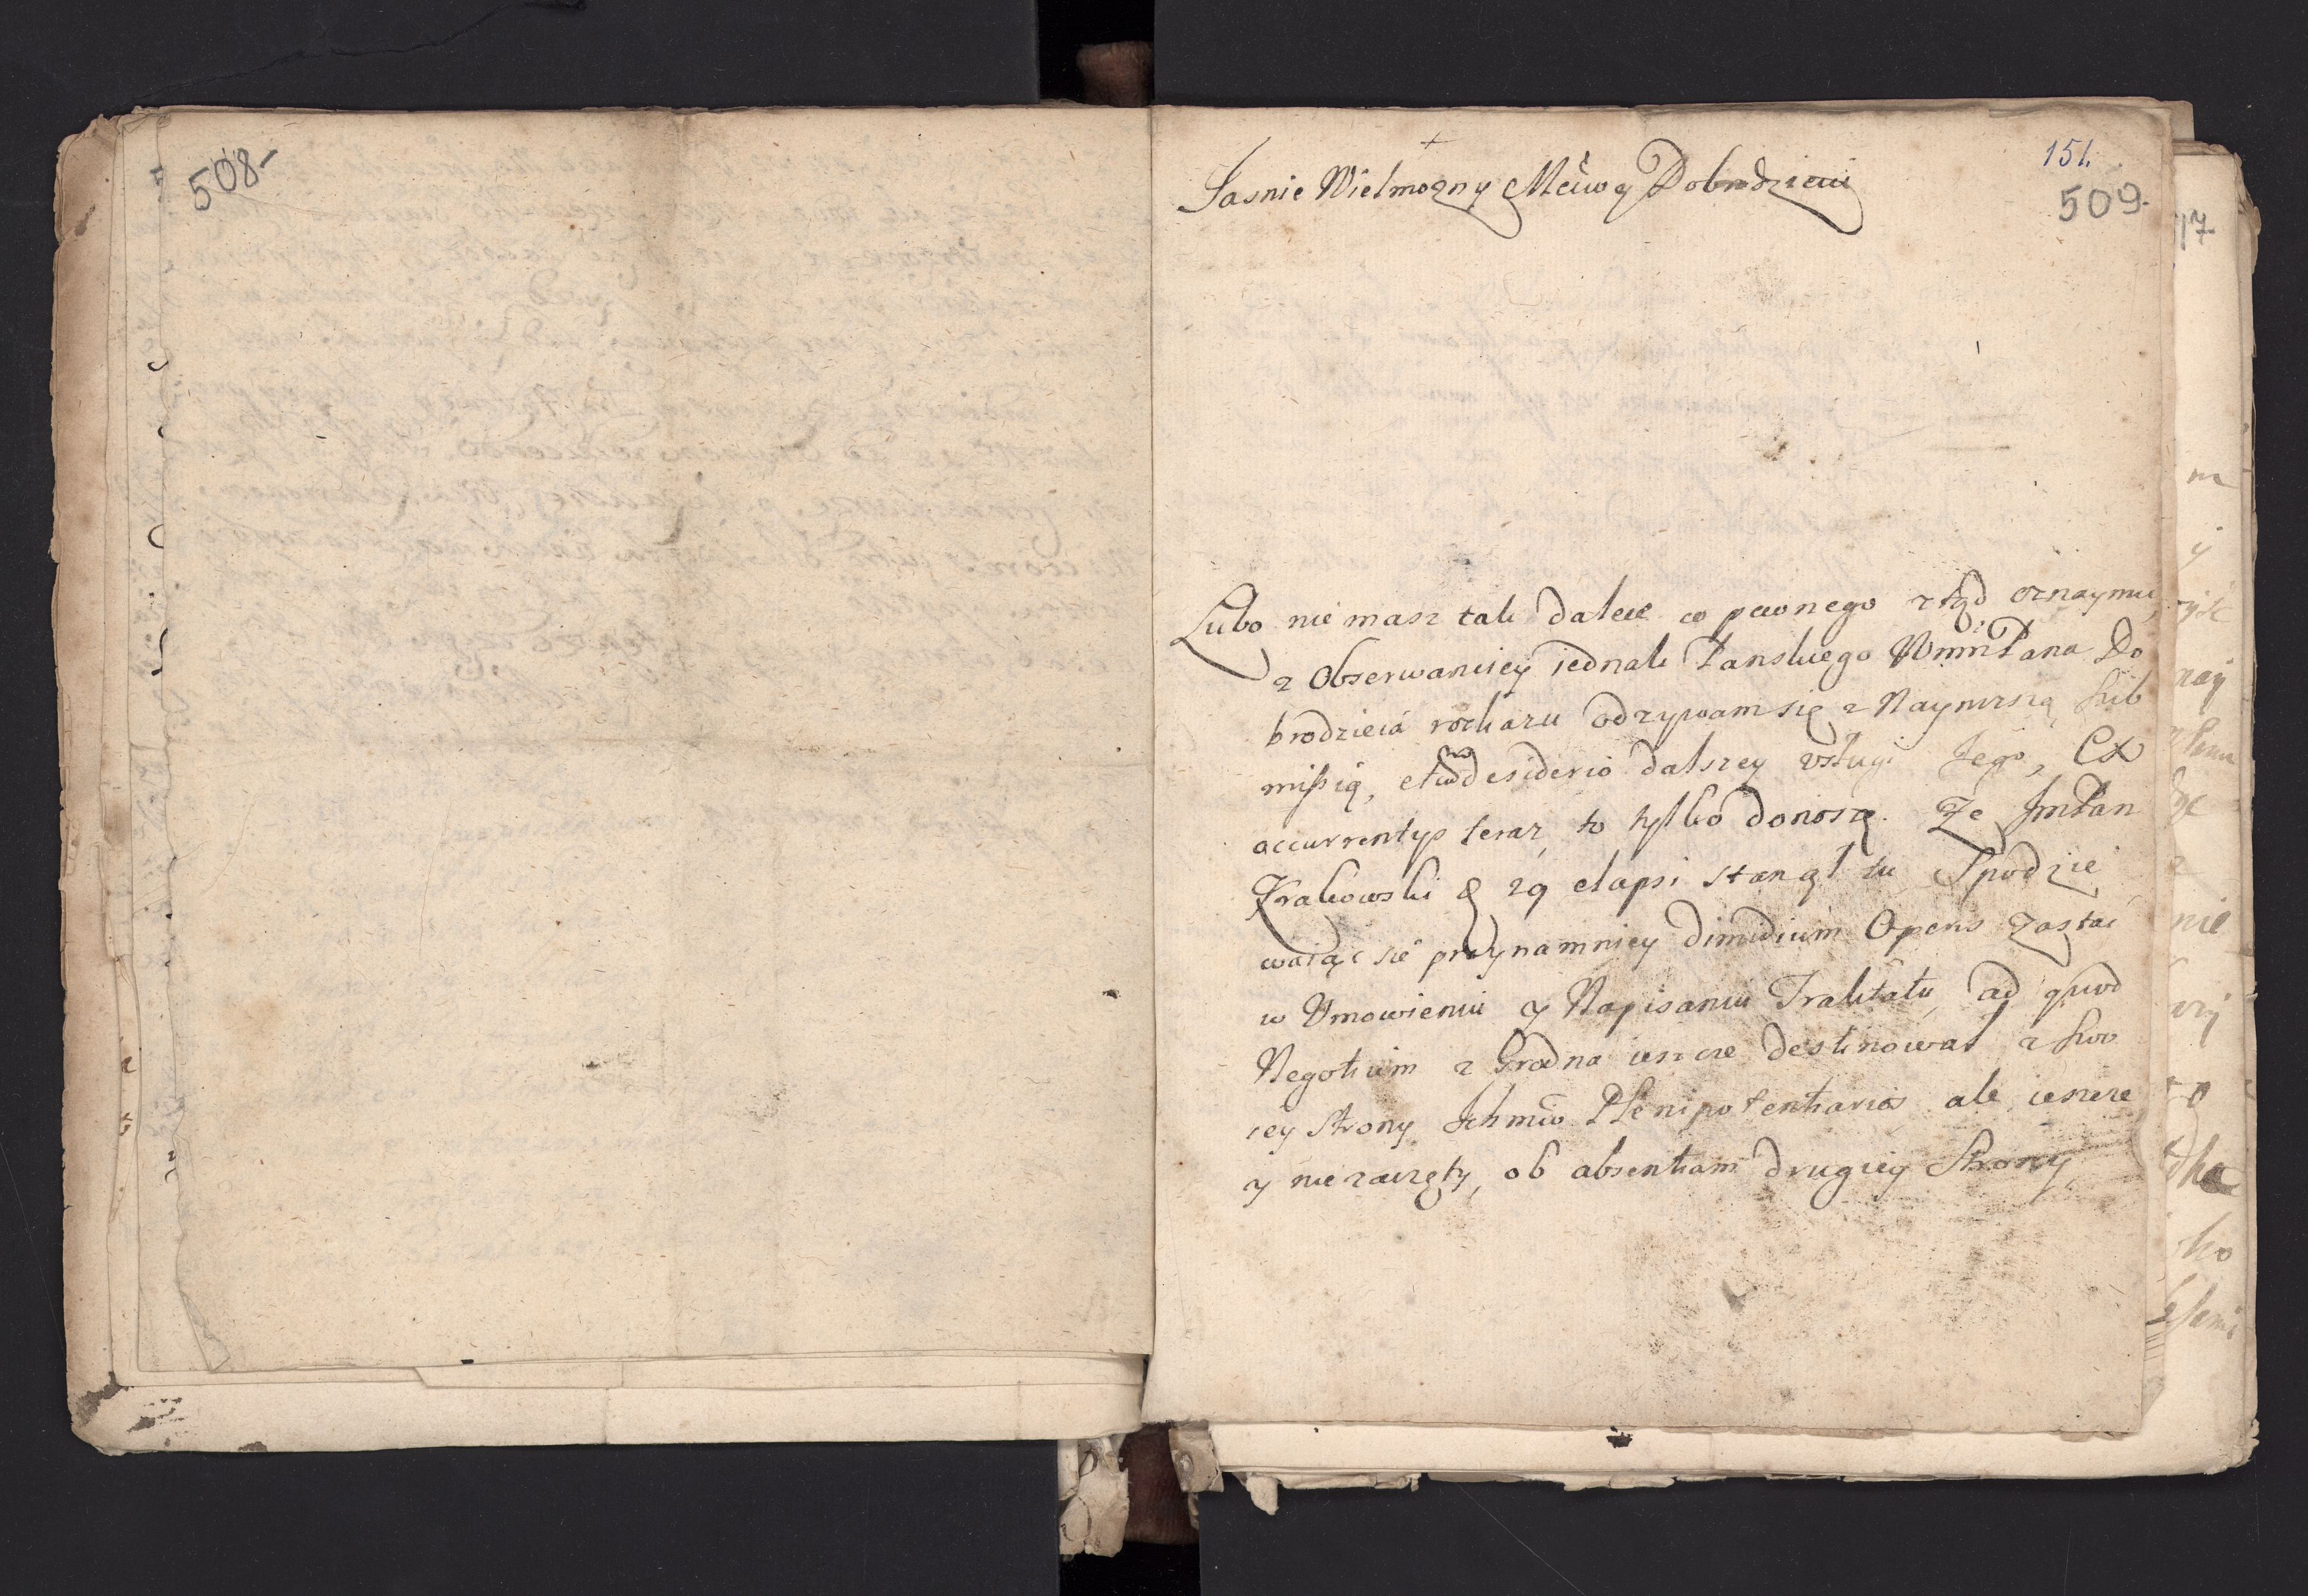 508-
151.
509.
+
Jasnie Wielmozny Mćiwy Dobrodzieiu
Lubo nie masz tak daleœ co pewnego ztąd oznaymić,
z Obserwancyey iednak Panskiego WmmPana Do
brodzieia rozkazu odzywam się z Nayniszszą Sub
missią, et cum desiderio dalszey usługi Jego, Ex
occurrentys teraz to tylko donoszę. Ze JmPan
Krakowski d 29 elapsi stanął tu Spodzie
waiąc sie przynamniey dimidium Operis Zastac
w Umowieniu y Napisaniu Traktatu, ad quod
Negotium z Grodna ieszcze destinował z swo
iey strony Ichmćiow Plenipotentiarios, ale ieszcze
y nie zaczęty, ob absentiam drugiey Strony,